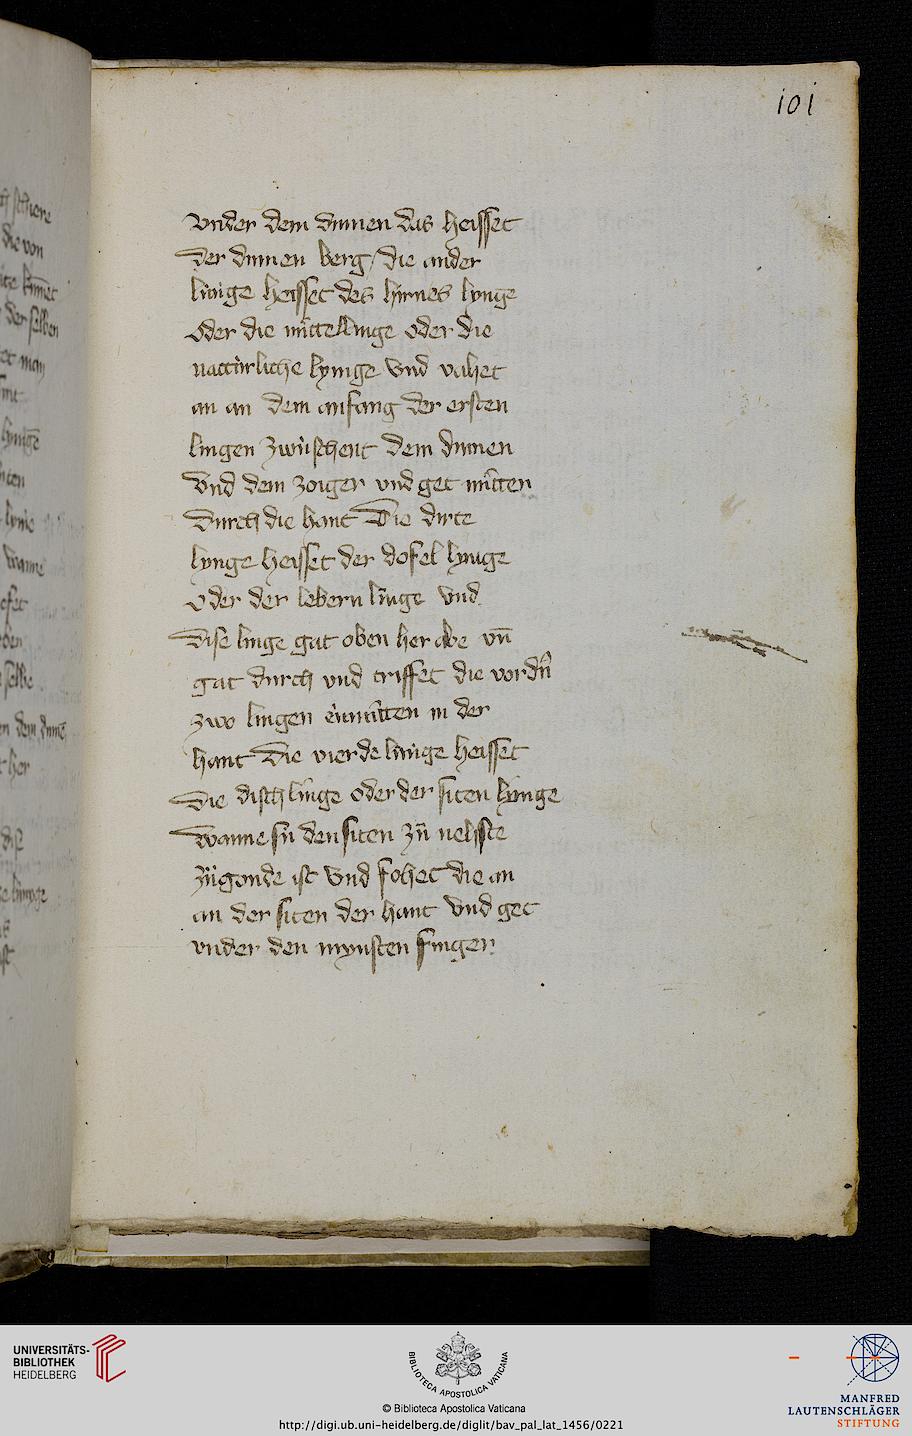 101
vnder dem dumen das heisset
Der dumen berg / die ander
linige heisset des hirnes lynge
Oder die mittellinge oder die
natturliche lynige vnd vahet
an an dem anfang der ersten
lingen zwuschent dem dumen
Vnd dem zoiger vnd get mitten
Durch die hant Die dirte
lynge heisset der dofel lynge
oder der lebern linge vnd
Dise linge gat oben her abe vn̄
gat durch vnd triffet die vordn̄
zwo lingen enmitten in der
hant Die vierde linige heisset
Die disch linge oder der siten lynge
Wanne sü den siten zü nehste
zügonde ist Vnd fohet die an
an der siten der hant Vnd get
vnder den mynsten finger
UNIVERSITÄTS-
BIBLIOTHEK
HEIDELBERG
BIBLIOTECA APOSTOLICA VATICANA
© Biblioteca Apostolica Vaticana
http://digi.ub.uni-heidelberg.de/diglit/bav_pal_lat_1456/0221
MANFRED
LAUTENSCHLÄGER
STIFTUNG